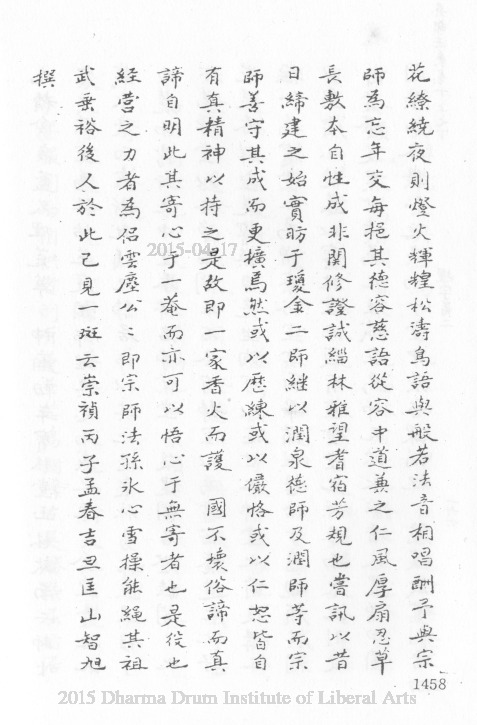 花繚繞夜則燈火輝煌松濤鳥語與般若法音相唱酬予與宗
師為忘年交每挹其德容慈語從容中道兼之仁風厚扇忍草
長敷本自性成非關修證誠緇林雅望耆宿芳規也嘗訊以昔
日締建之始實昉于瓊金二師継以潤泉德師及潤師等而宗
師善守其成而更擴焉然或以歷練或以儼恪或以仁恕皆自
有真精神以持之是故即一家香火而護 國不壞俗諦而真
諦自明此其寄心于一菴而亦可以悟心于無寄者也是役也
經营之力者為侶雲塵公〻即宗師法孫氷心雪操能繩其祖
武垂裕後人於此已見一斑云崇禎丙子孟春吉旦匡山智旭
撰
2015-04-17
1458
2015 Dharma Drum Institute of Liberal Arts